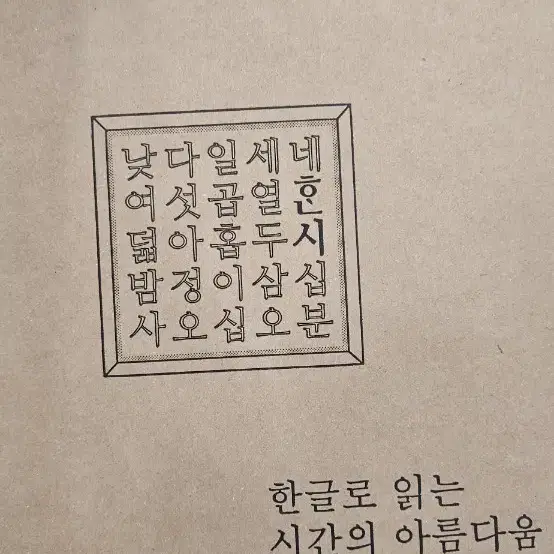 낮다일세네
여섯곱열한
덟아홉두시
밤정이삼십
사오십오분
한글로 읽는
시간의 아름다움